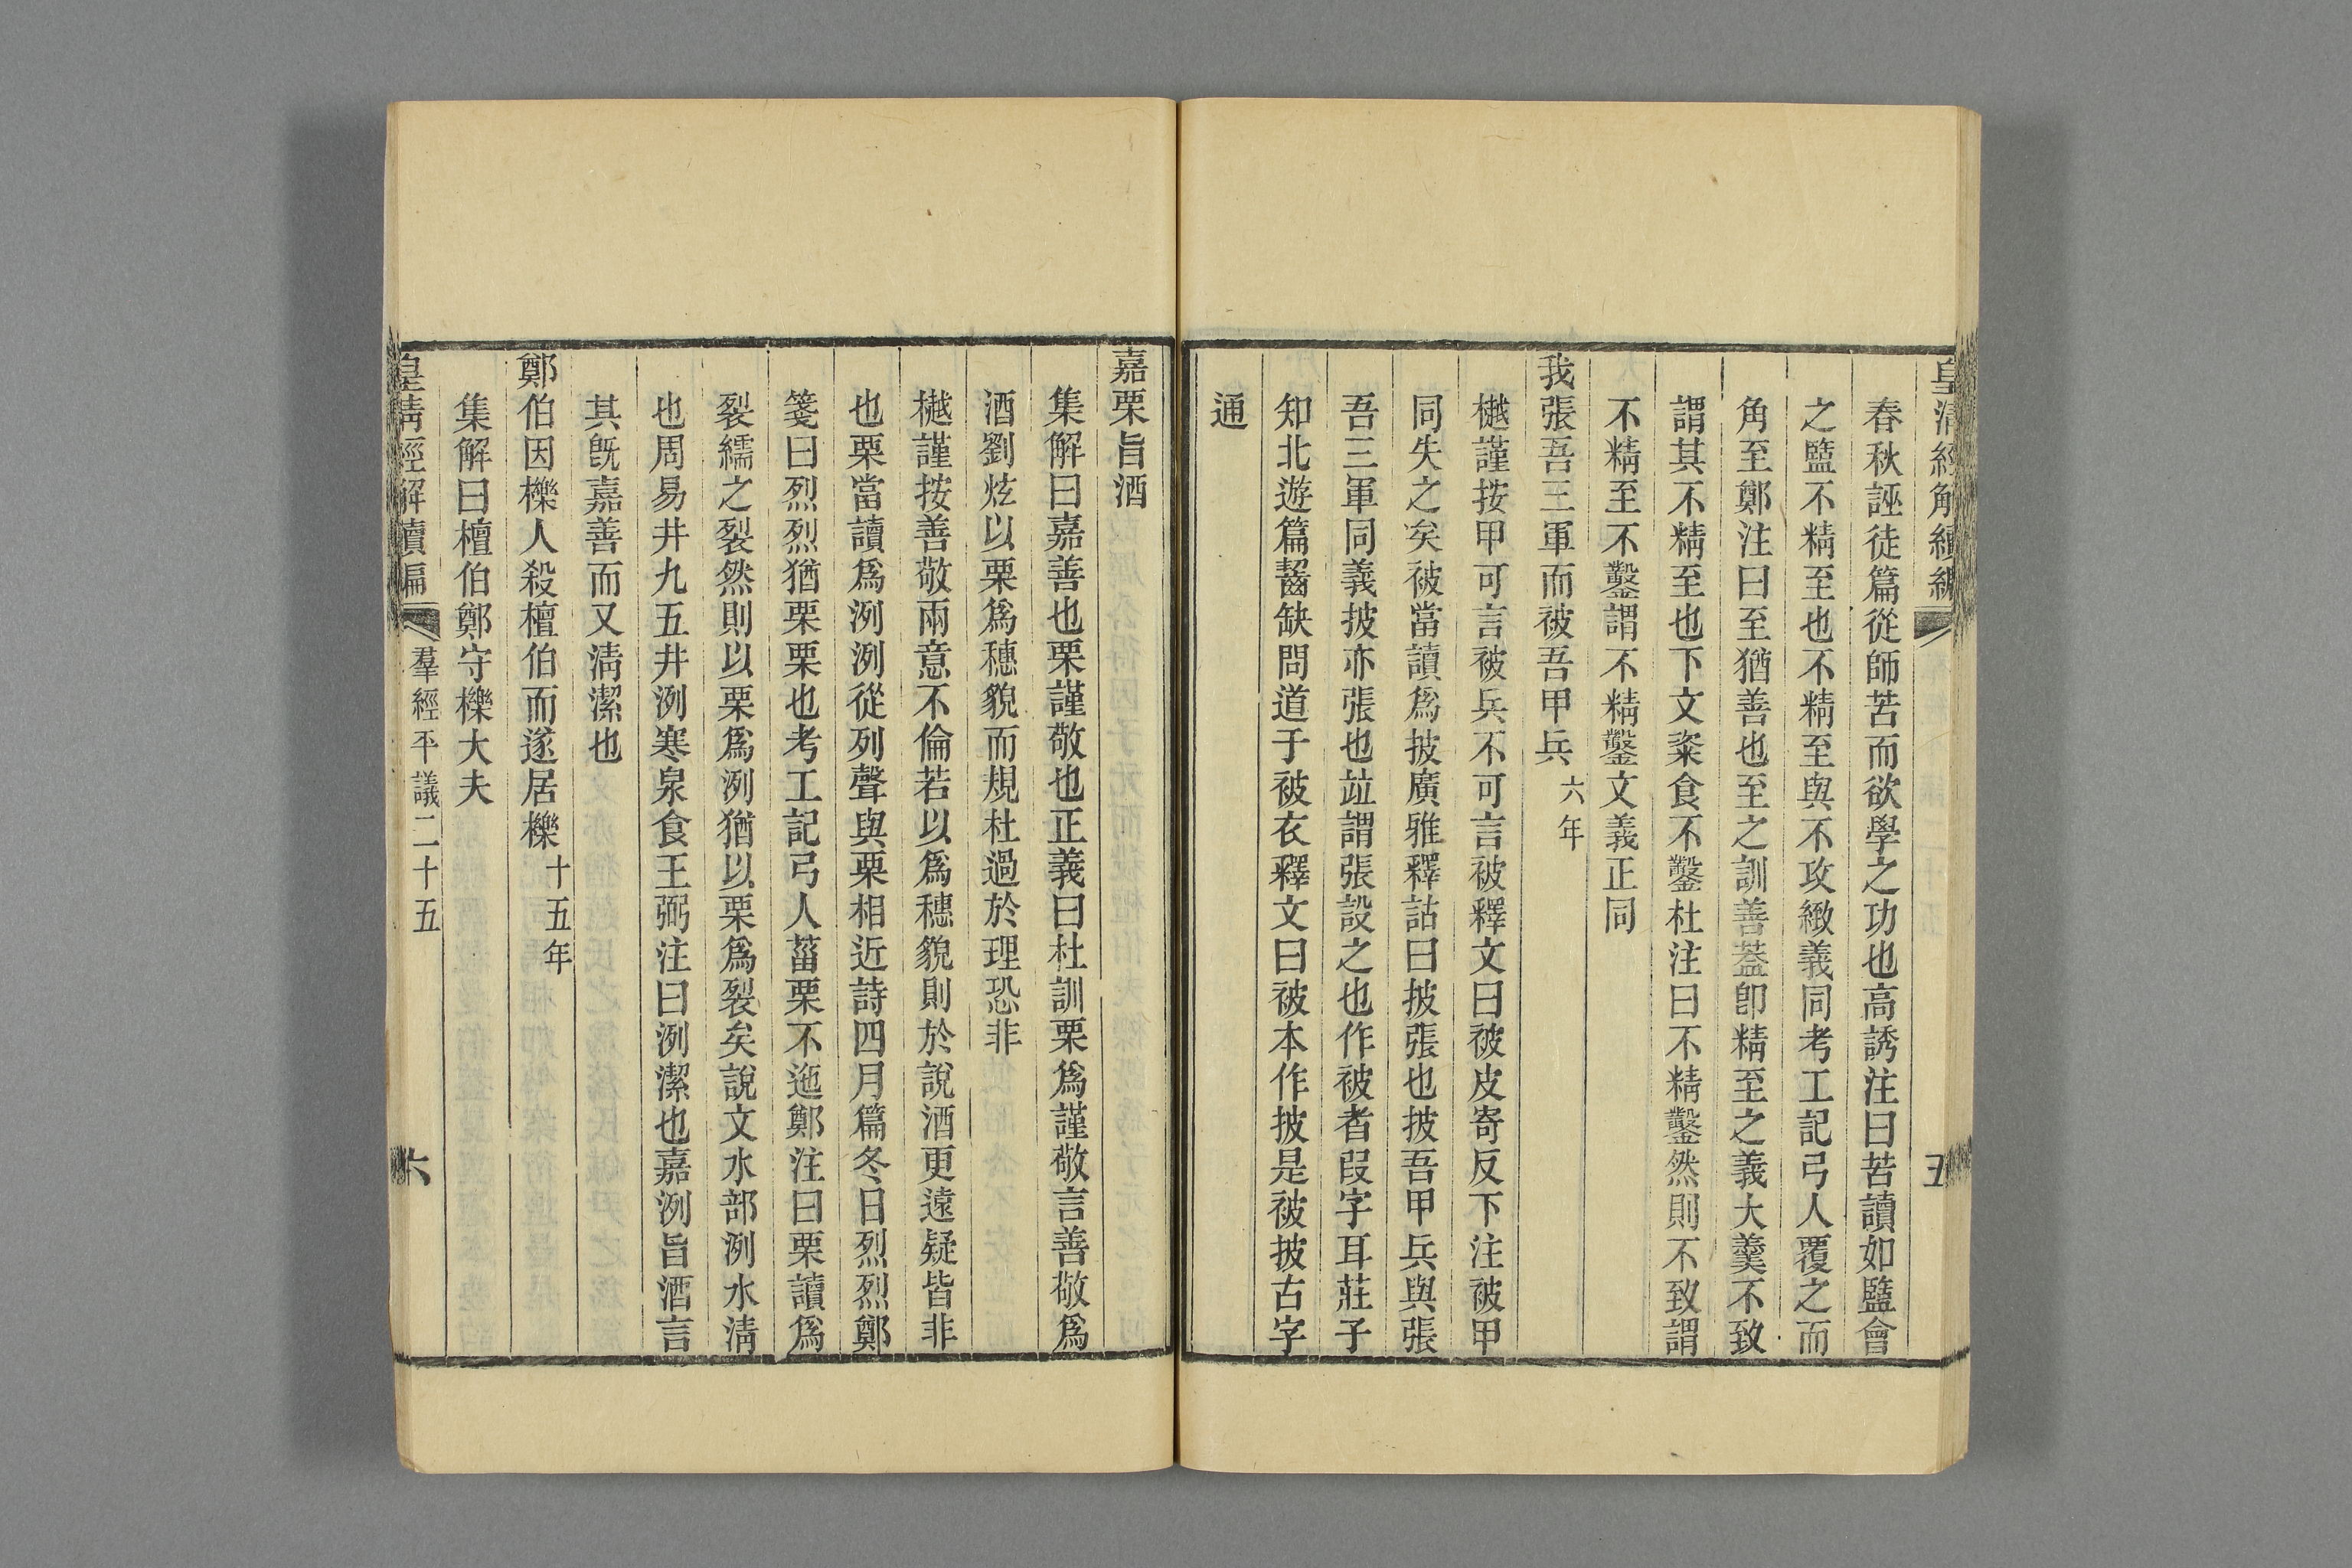 皇清經解續編
五
春秋誣徒篇從師苦而欲學之功也高誘注曰苦讀如盬會
之盬不精至也不精至與不攻緻義同考工記弓人覆之而
角至鄭注曰至猶善也至之訓善葢卽精至之義大羹不致
謂其不精至也下文粢食不鑿杜注曰不精鑿然則不致謂
不精至不鑿謂不精鑿文義正同
我張吾三軍而被吾甲兵 六年
樾謹按甲可言被兵不可言被釋文曰被皮寄反下注被甲
同失之矣被當讀爲披廣雅釋詁曰披張也披吾甲兵與張
吾三軍同義披亦張也竝謂張設之也作被者叚字耳莊子
知北遊篇齧缺問道于被衣釋文曰被本作披是被披古字
通
嘉栗旨酒
集解曰嘉善也栗謹敬也正義曰杜訓栗爲謹敬言善敬爲
酒劉炫以栗爲穗貌而規杜過於理恐非
樾謹按善敬兩意不倫若以爲穗貌則於說酒更遠疑皆非
也栗當讀爲洌洌從列聲與栗相近詩四月篇冬日烈烈鄭
箋曰烈烈猶栗栗也考工記弓人菑栗不迆鄭注曰栗讀爲
裂繻之裂然則以栗爲洌猶以栗爲裂矣說文水部洌水淸
也周易井九五井洌寒泉食王弼注曰洌潔也嘉洌旨酒言
其旣嘉善而又淸潔也
鄭伯因櫟人殺檀伯而遂居櫟 十五年
集解曰檀伯鄭守櫟大夫
皇清經解續編
羣經平議二十五
六